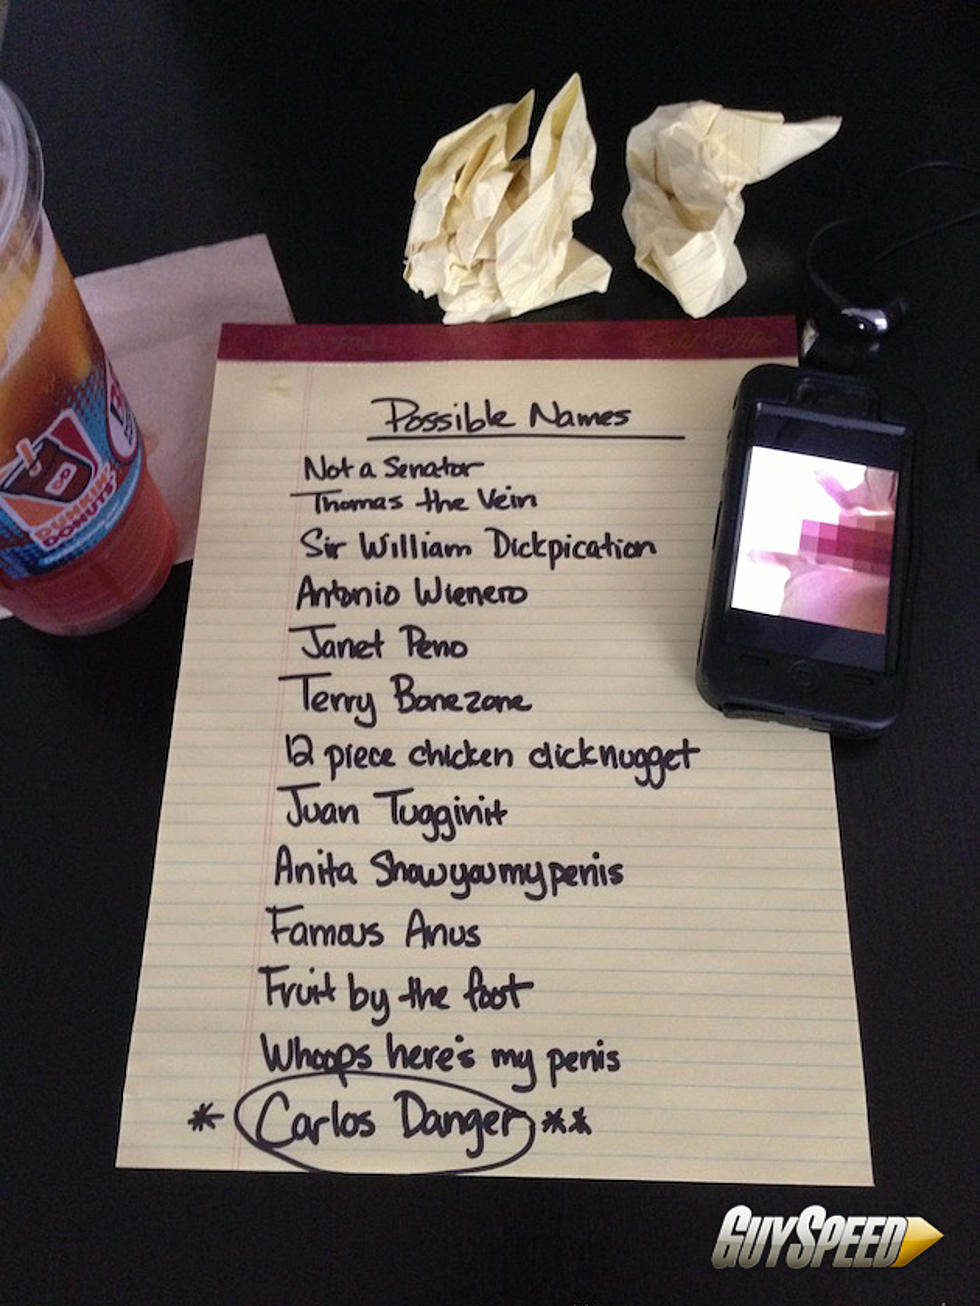 Possible Names
Not a Senator
Thomas the Vein
Sir William Dickpication
Antonio Wienero
Janet Peno
Terry Bonezone
12 piece chicken dicknugget
Juan Tugginit
Anita Showyoumypenis
Famous Anus
Fruit by the foot
Whoops here's my penis
* Carlos Danger **
DUNKIN'
DONUTS
GUYSPEED